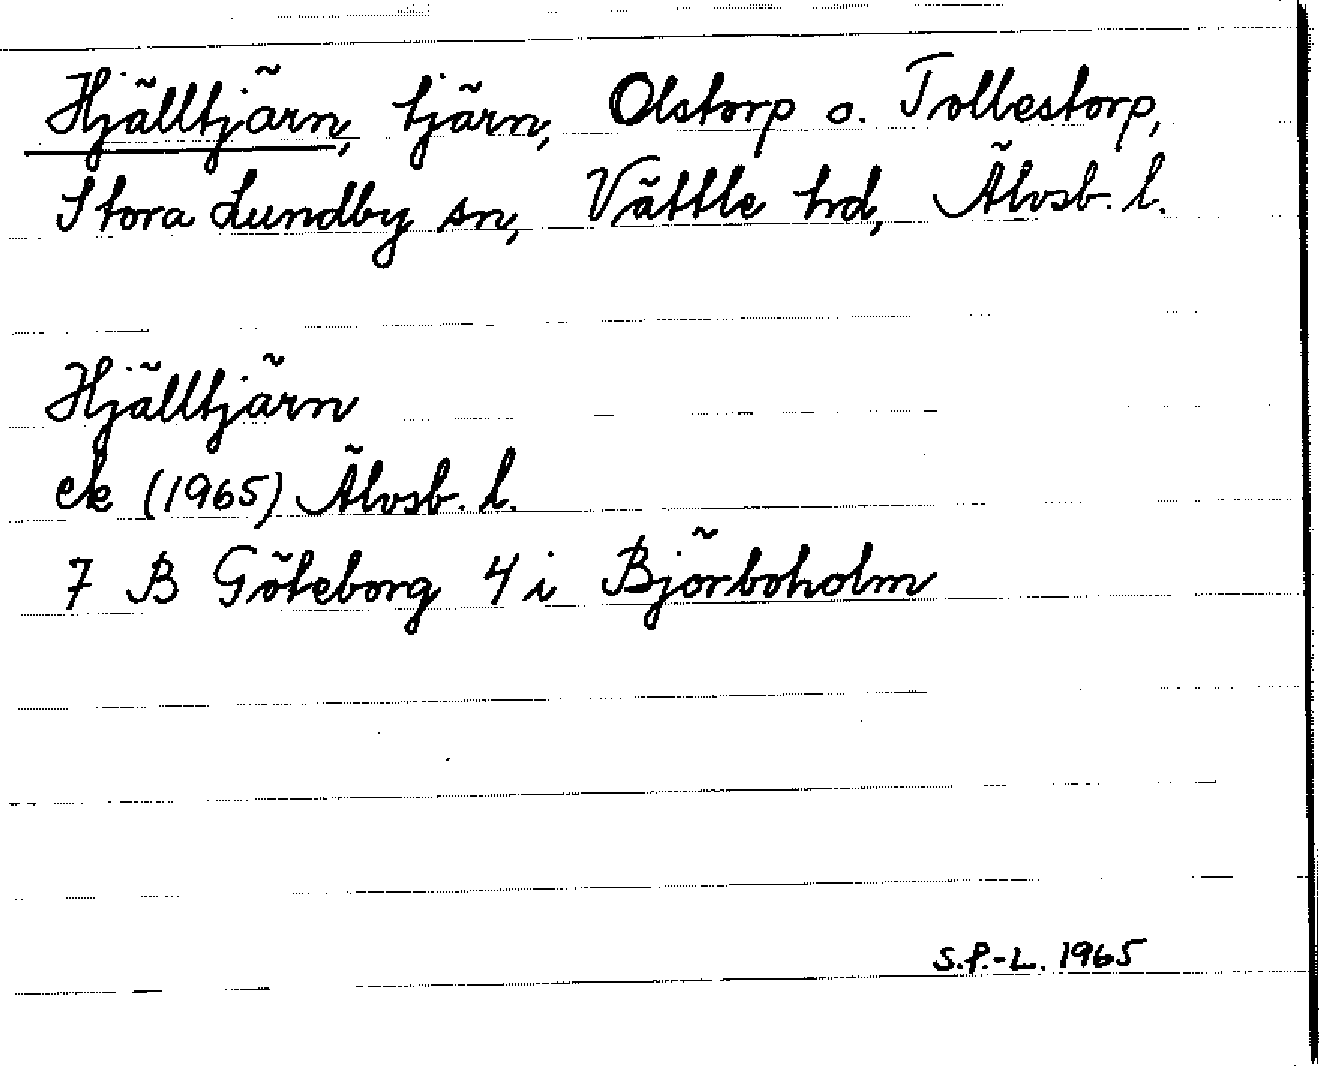 Hjälltjärn, tjärn, Olstorp o. Tollestorp,
Stora Lundby sn, Vättle hd, Älvsb. l.
Hjälltjärn
ek (1965) Älvsb. l.
7 B Göteborg 4 i Björboholm
S.P.-L. 1965